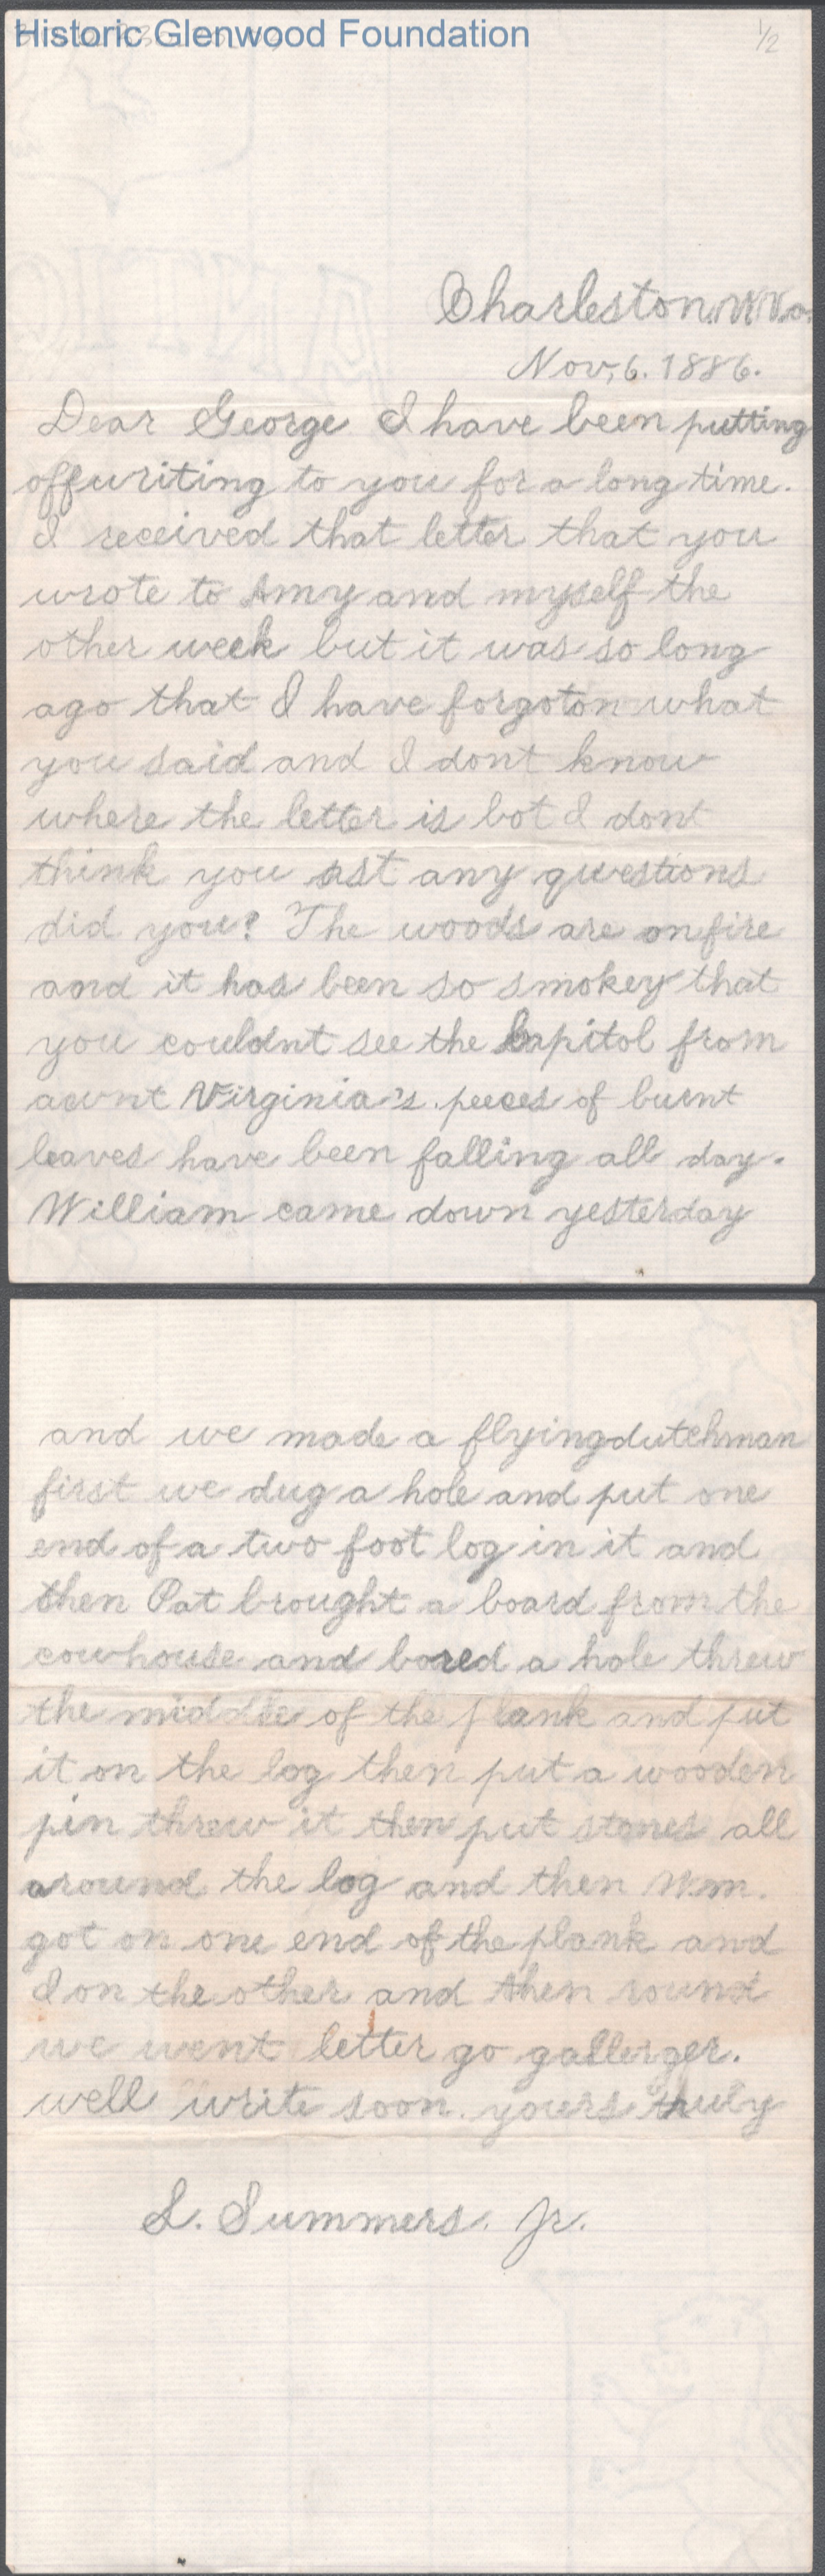 Historic Glenwood Foundation
1/2
Charleston, W.Va.
Nov, 6. 1886.
Dear George I have been putting
off writing to you for a long time.
I received that letter that you
wrote to Amy and myself the
other week but it was so long
ago that I have forgoton what
you said and I dont know
where the letter is bot I dont
think you ast any questions
did you? The woods are on fire
and it has been so smokey that
you couldnt see the Capitol from
aunt Virginia's. peeces of burnt
leaves have been falling all day.
William came down yesterday
and we made a flying dutchman
first we dug a hole and put one
end of a two foot log in it and
then Pat brought a board from the
cowhouse and bored a hole threw
the middle of the plank and put
it on the log then put a wooden
pin threw it then put stones all
around the log and then Wm.
got on one end of the plank and
I on the other and then round
we went letter go gallerger.
well write soon. yours truly
L. Summers. Jr.